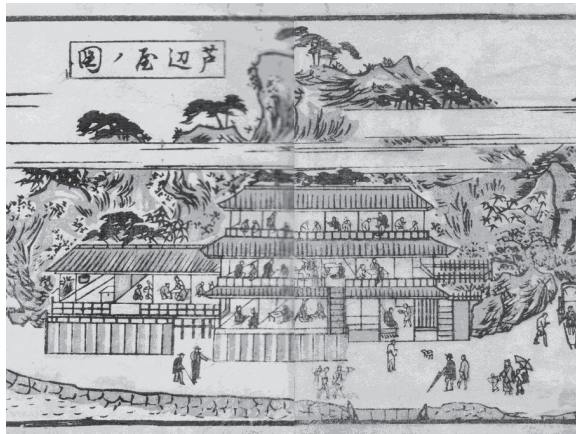 芦辺屋ノ圖